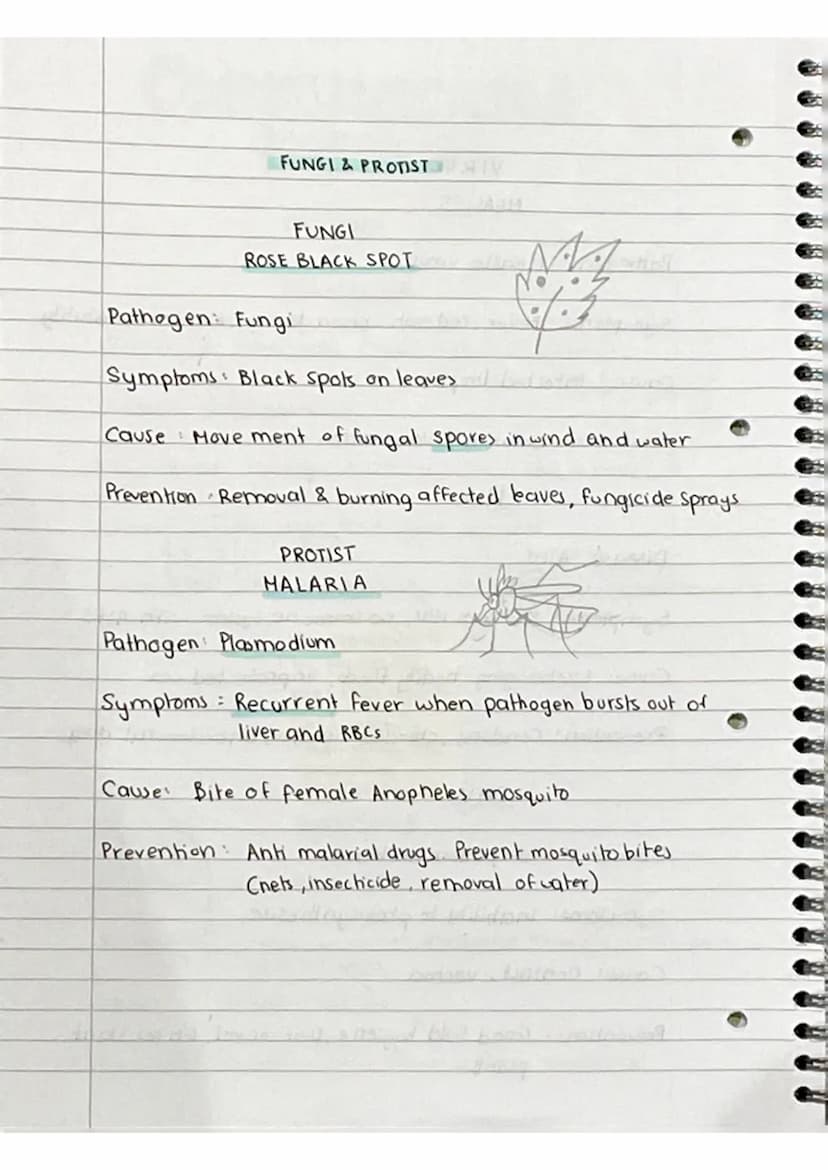 FUNGI & PROTIST
FUNGI
ROSE BLACK SPOT
Pathogen: Fungi
Symptoms: Black spots on leaves
Cause: Movement of fungal spores in wind and water
Prevention: Removal & burning affected leaves, fungicide sprays
PROTIST
MALARIA
Pathogen: Plasmodium
Symptoms: Recurrent fever when pathogen bursts out of
liver and RBCs
Cause: Bite of female Anopheles mosquito
Prevention: Anti malarial drugs. Prevent mosquito bites
(nets, insecticide, removal of water)